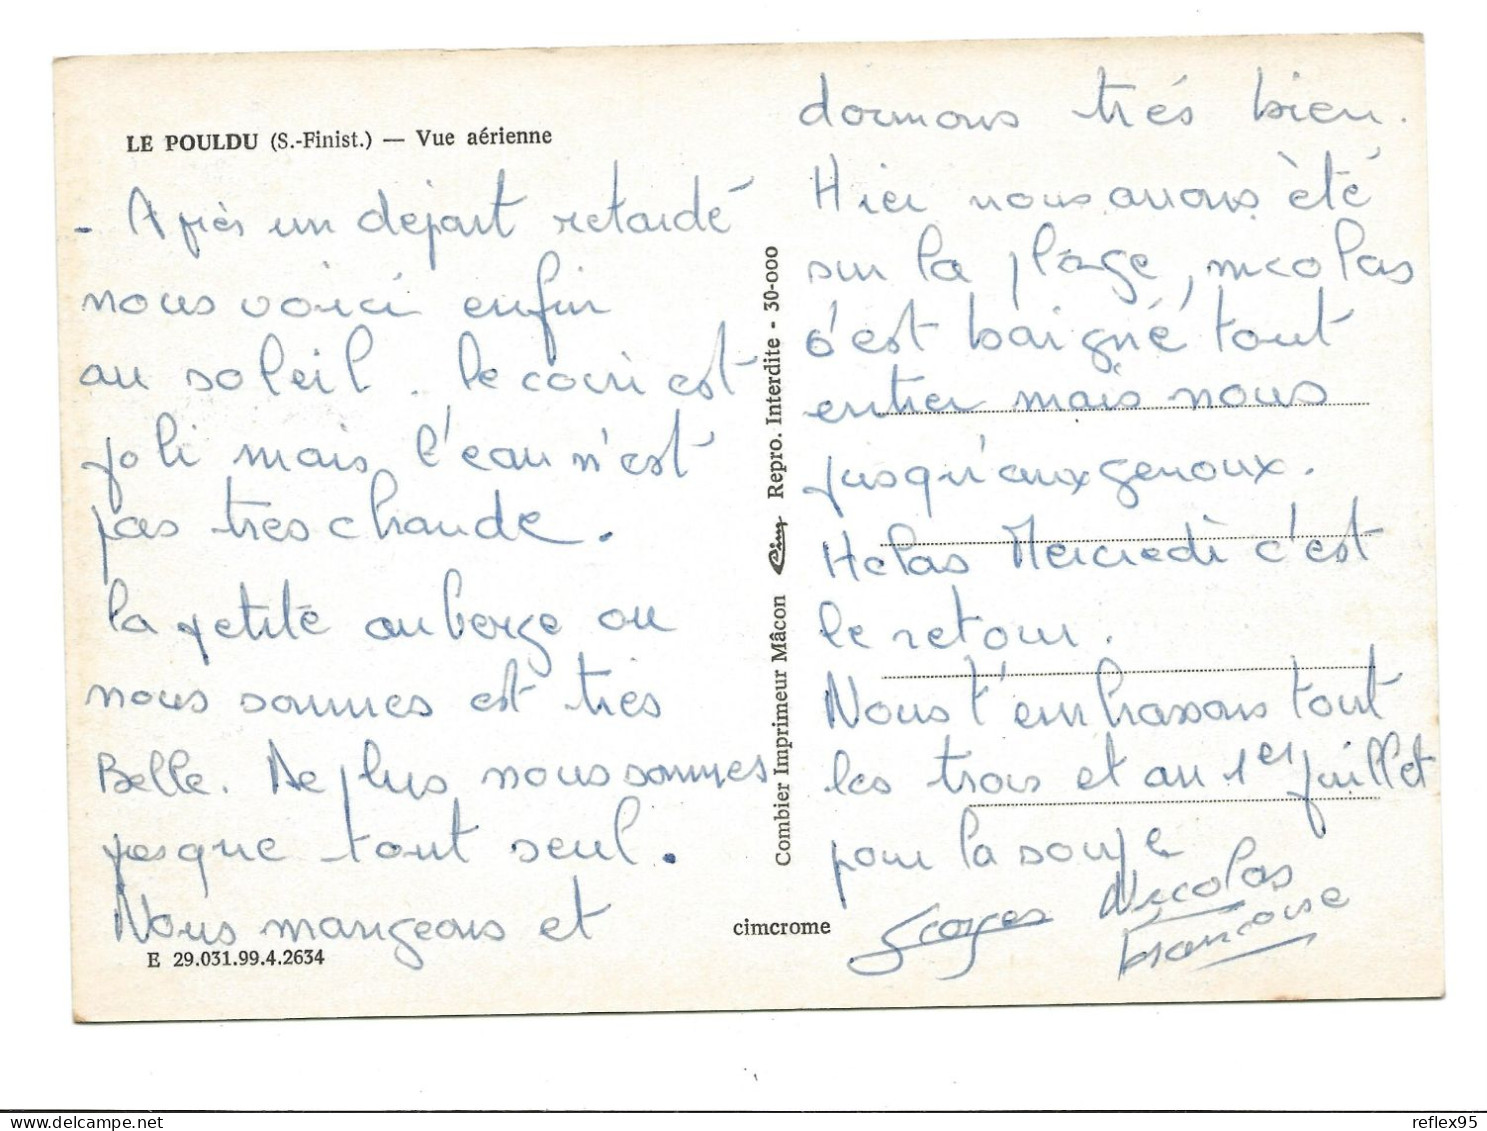 LE POULDU (S.-Finist.) — Vue aérienne
- Après un départ retardé
nous voici enfin
au soleil. le coin est
joli mais l'eau n'est
pas tres chaude.
la petite auberge ou
nous sommes est tres
Belle. De plus nous sommes
presque tout seul.
Nous mangeons et
E 29.031.99.4.2634
Combier Imprimeur Mâcon Cim Repro. Interdite - 30-000
cimcrome
dormons trés bien.
Hier nous avons èté
sur la plage, nicolas
s'est baigné tout
entier mais nous
jusqu'aux genoux.
Helas Mercredi c'est
le retour.
Nous t'embrassons tout
les trois et au 1er juillet
pour la soupe
Georges Nicolas
francoise
reflex95